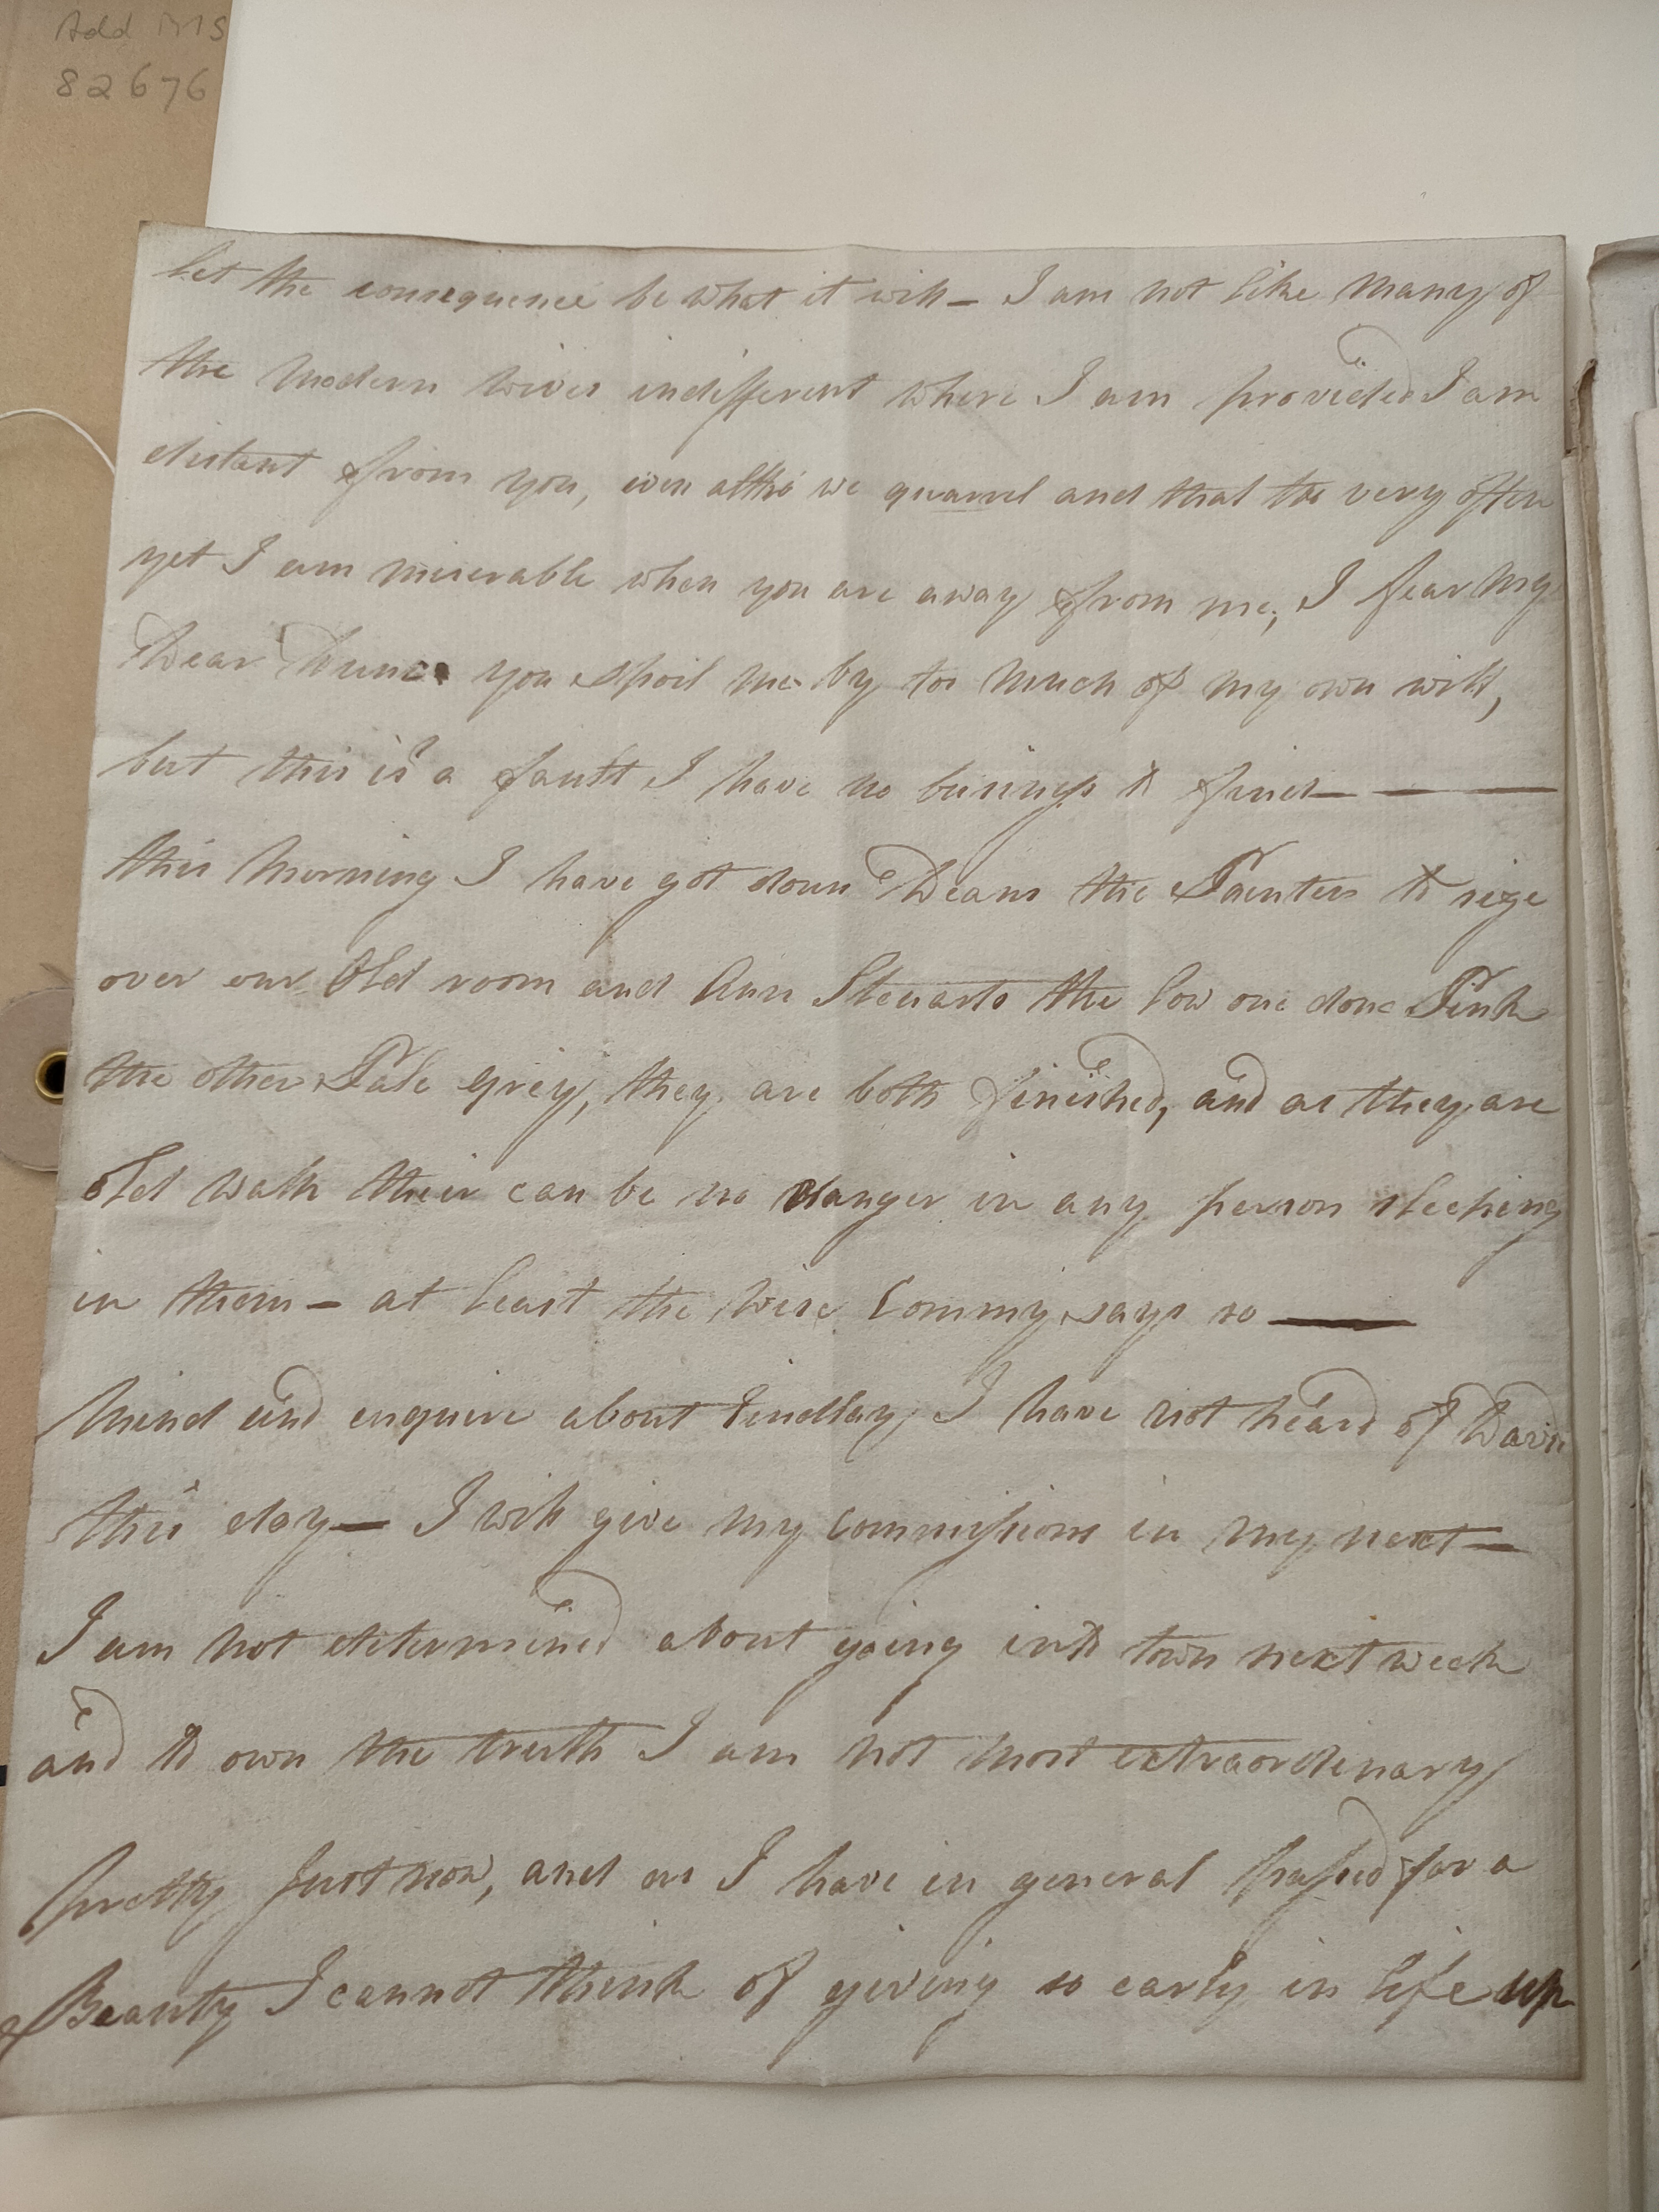 Add MS
82676
let the consequence be what it will – I am not like many of
the modern wives indifferent where I am provided I am
distant from you, even altho we quarrel and that too very often
yet I am miserable when you are away from me, I fear my
Dear you spoil me by too much of my own will,
but this is a fault I have no business to find — — —
this morning I have got down Deans the Painter to size
over our Old room and Ann Steuarts the low one done Pink
the other Pale grey, they are both finished, and as they are
old walls their can be no danger in any person sleeping
in them – at least the wise Tommy says so —
mind and enquire about Findlay, I have not heard of
this day — I will give my commissions in my next —
I am not determined about going into town next week
and to own the truth I am not most extraordinary
pretty just now, and as I have in general passed for a
Beauty I cannot think of giving so early in life up